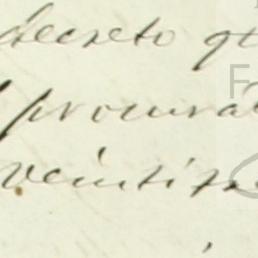 decreto q
procura
veintit